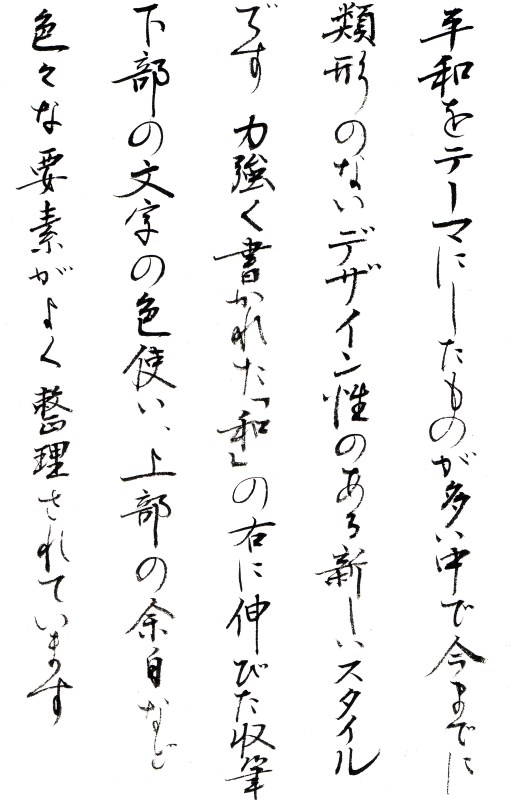 平和をテーマにしたものが多い中で今までに
類形のないデザイン性のある新しいスタイル
です 力強く書かれた「和」の右に伸びた収筆
下部の文字の色使い、上部の余白など
色々な要素がよく整理されています